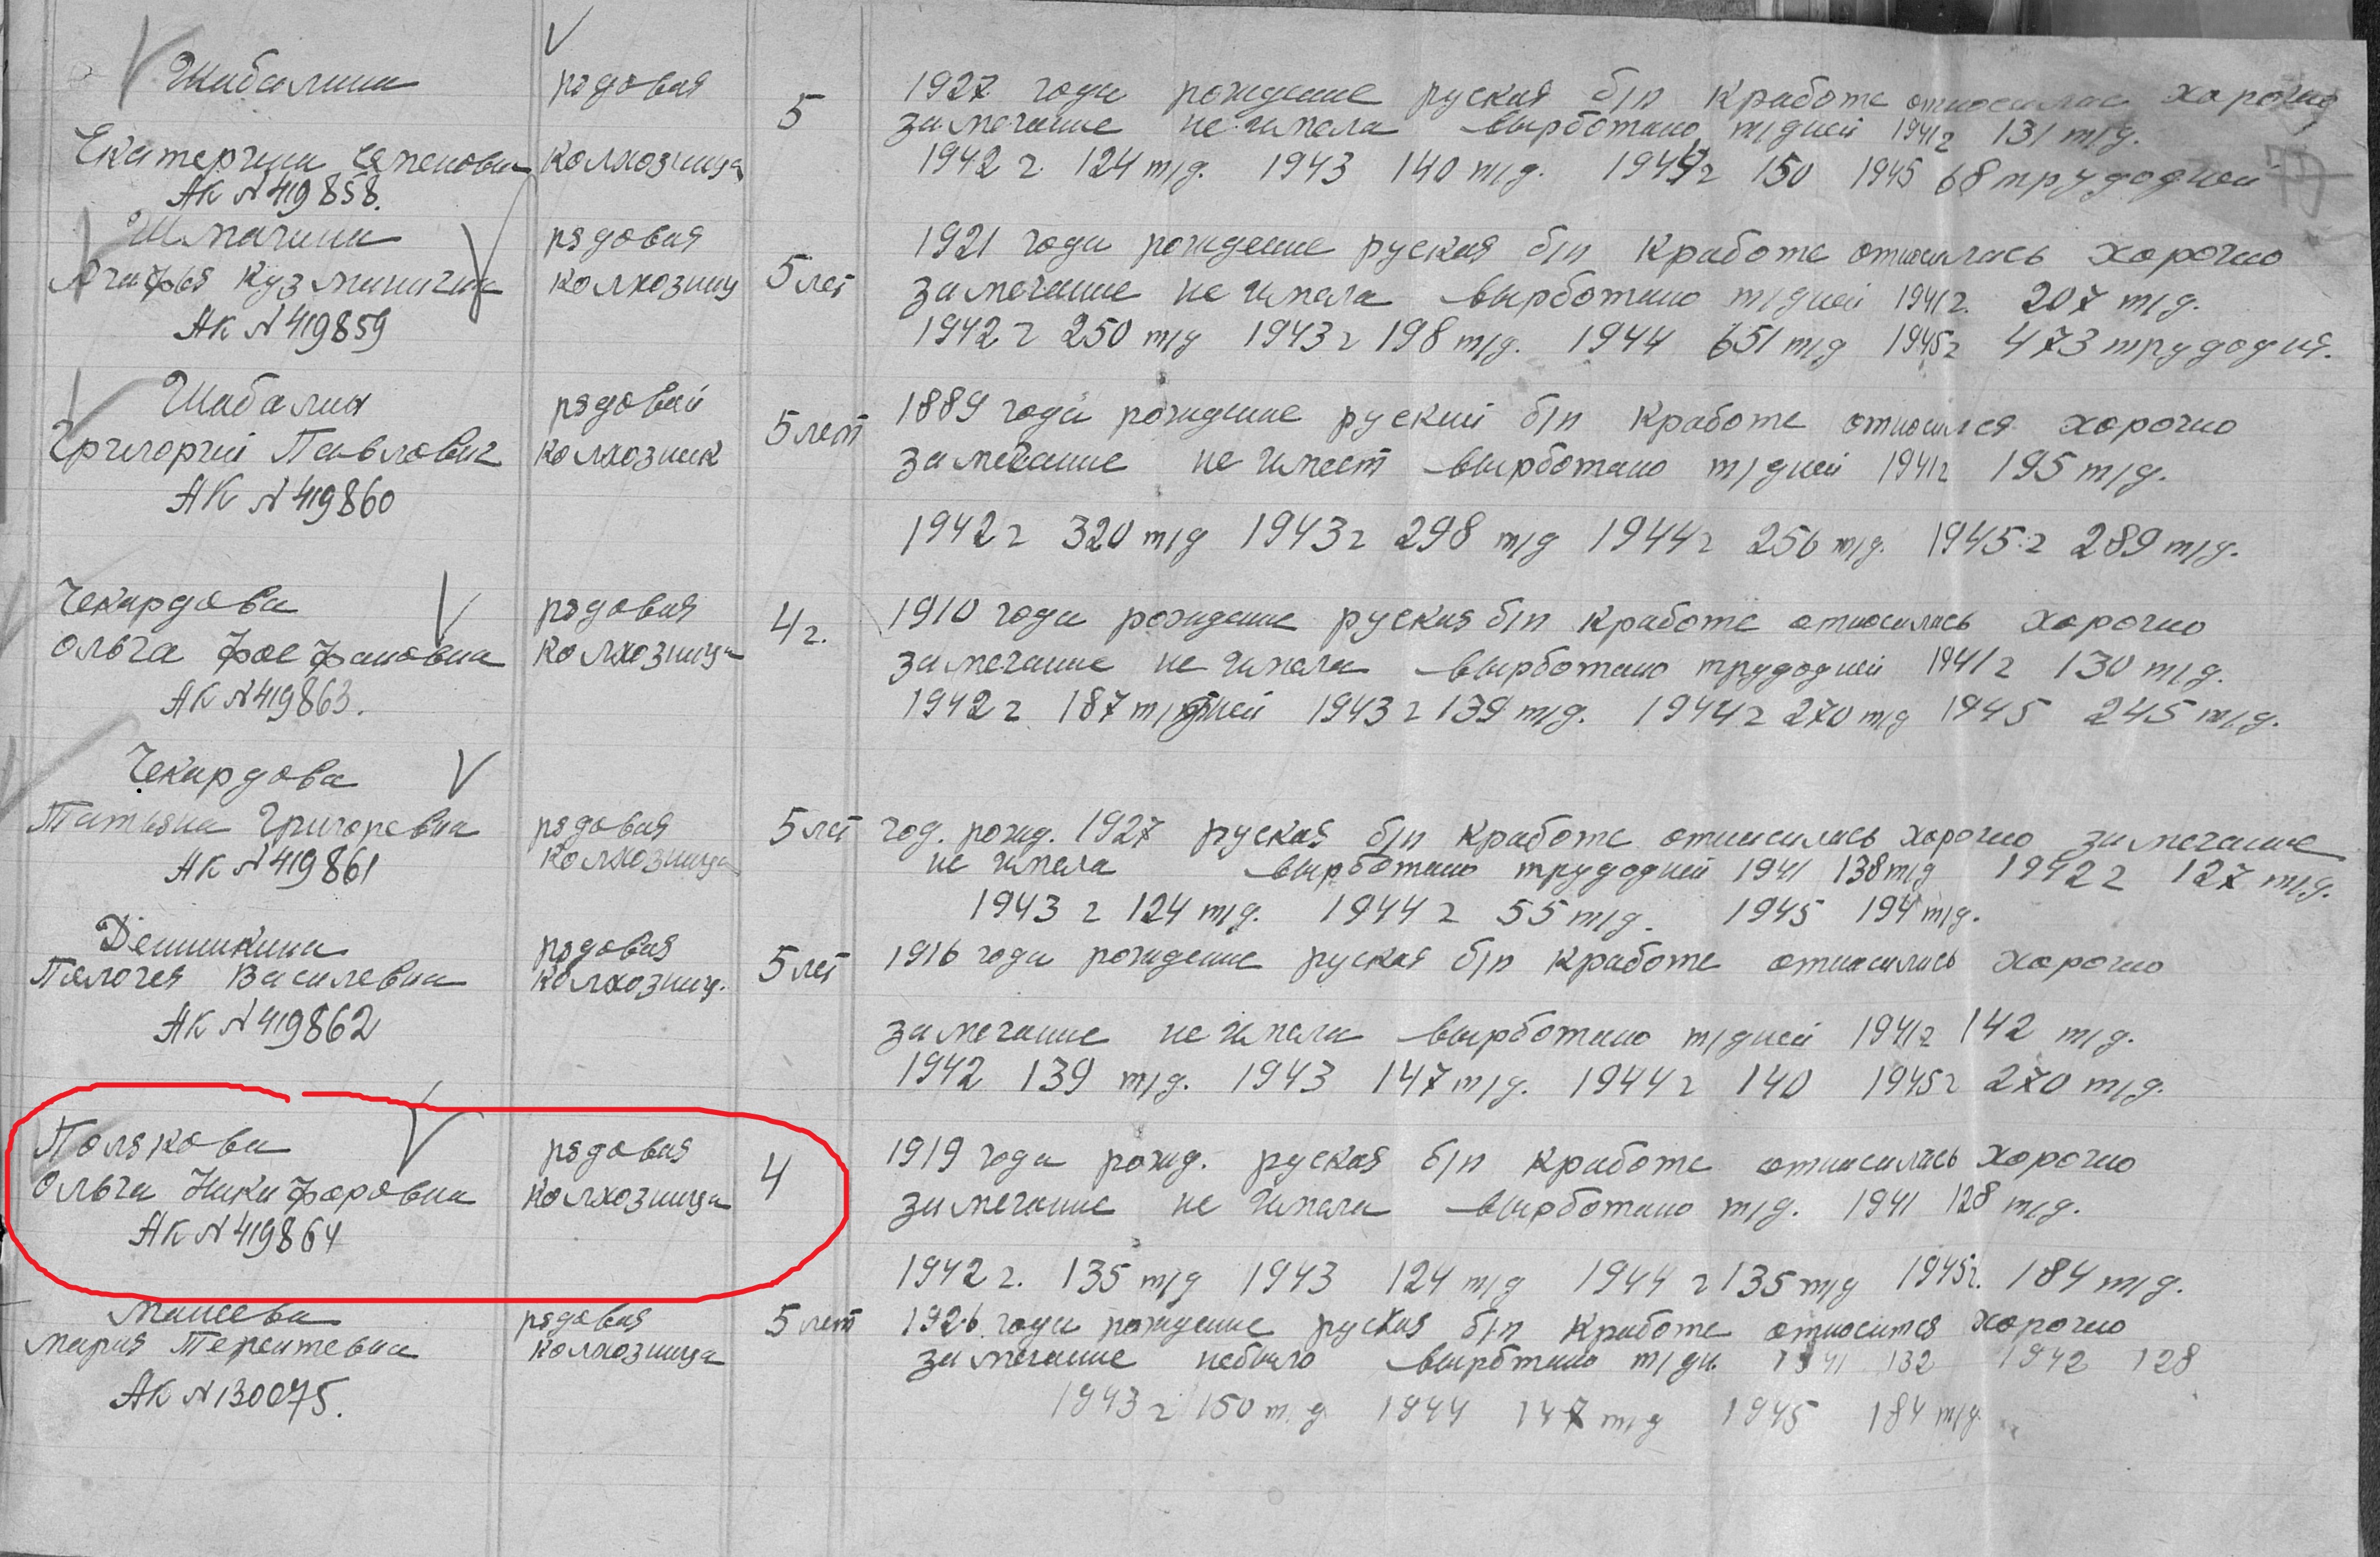 Шабалина рядовая 5 1927 года рождение руская б/п К работе относилас хорошо
замечание не имела вырботано т/дней 1941г 131 т/д.
Екатерина Семеновна колхозница 1942 г. 124 т/д. 1943 140 т/д. 1944г 150 1945 68 трудодней
АК N 419858.
Шмагина рядовая 1921 года рождение руская б/п К работе относилась хорошо
Агафья Кузминична колхозниц 5 лет замечание не имела вырботано т/дней 1941г. 207 т/д.
АК N 419859 1942 г 250 т/д 1943 г 198 т/д. 1944 651 т/д 1945г 473 трудодня.
Шабалин рядовой 5 лет 1889 года рождение руский б/п К работе относился хорошо
Григорий Павлович колхозник замечание не имеет вырботано т/дней 1941г 195 т/д.
АК N 419860
1942 г 320 т/д 1943 г 298 т/д 1944 г 256 т/д. 1945 г 289 т/д.
Чекардова рядовая 4 г. 1910 года рождение руская б/п К работе относилась хорошо
Ольга Фоефановна колхозница замечание не имела вырботано трудодней 1941 г 130 т/д.
АК N 419863. 1942 г 187 т/дней 1943 г 139 т/д. 1944 г 270 т/д 1945 245 т/д.
Чекардова
Татьяна Григоревна рядовая 5 лет год. рожд. 1927 руская б/п К работе относилась хорошо замечание
АК N 419861 колхозница не имела вырботано трудодней 1941 138 т/д 1942 г 127 т/д.
1943 г 124 т/д. 1944 г 55 т/д. 1945 194 т/д.
Демшкина рядовая 5 лет 1916 года рождение руская б/п К работе относилась хорошо
Пологея Василевна колхозниц.
АК N 419862 замечание не имела вырботано т/дней 1941г 142 т/д.
1942 139 т/д. 1943 147 т/д. 1944 г 140 1945 г 270 т/д.
Полякова рядовая 4 1919 года рожд. руская б/п К работе относилась хорошо
Ольга Никифоровна колхозница замечание не имела вырботано т/д. 1941 128 т/д.
АК N 419864
1942 г. 135 т/д 1943 124 т/д 1944 г 135 т/д 1945г. 184 т/д.
Мансева рядовая 5 лет 1926 года рождение руская б/п К работе относится хорошо
Мария Терентевна колхозница замечание небыло вырбтано т/дн. 1941 132 1942 128
АК N 130075. 1943 г 150 т.д 1944 147 т/д 1945 184 т/д.